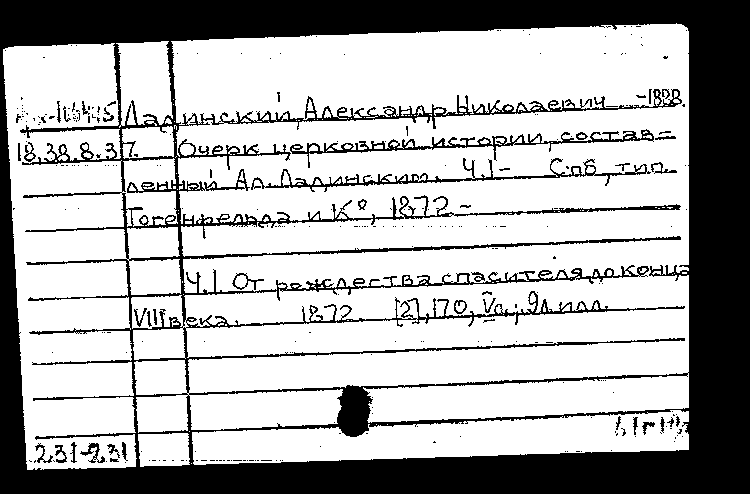 Ладинский, Александр Николаевич -1888.
18.38.8.37. Очерк церковной истории, состав=
ленный Ал. Ладинским. Ч.1- Спб, тип.
Гогенфельда и К°, 1872.-
Ч.1 От рождества спасителя до конца
VIII века. 1872. [2], 170, Vс.; 9л илл.
231-9.31